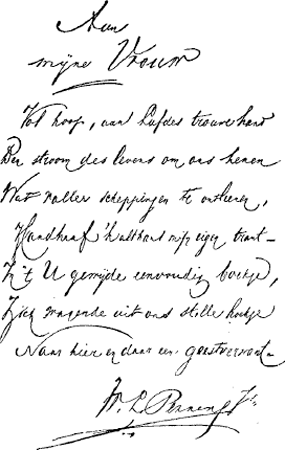 Aan
mijne Vrouw
Tot hoop, aan liefdes trouwe hand
Den stroom des levens om ons henen
Wat voller scheppingen te ontleenen,
Handhaaf 'k althans mijn eigen trant –
Zij't U gewijde eenvoudig boekje,
Zich wagende uit ons stille hoekje
Naar hier en daar een geestverwant –
W. L. Penning Jr.